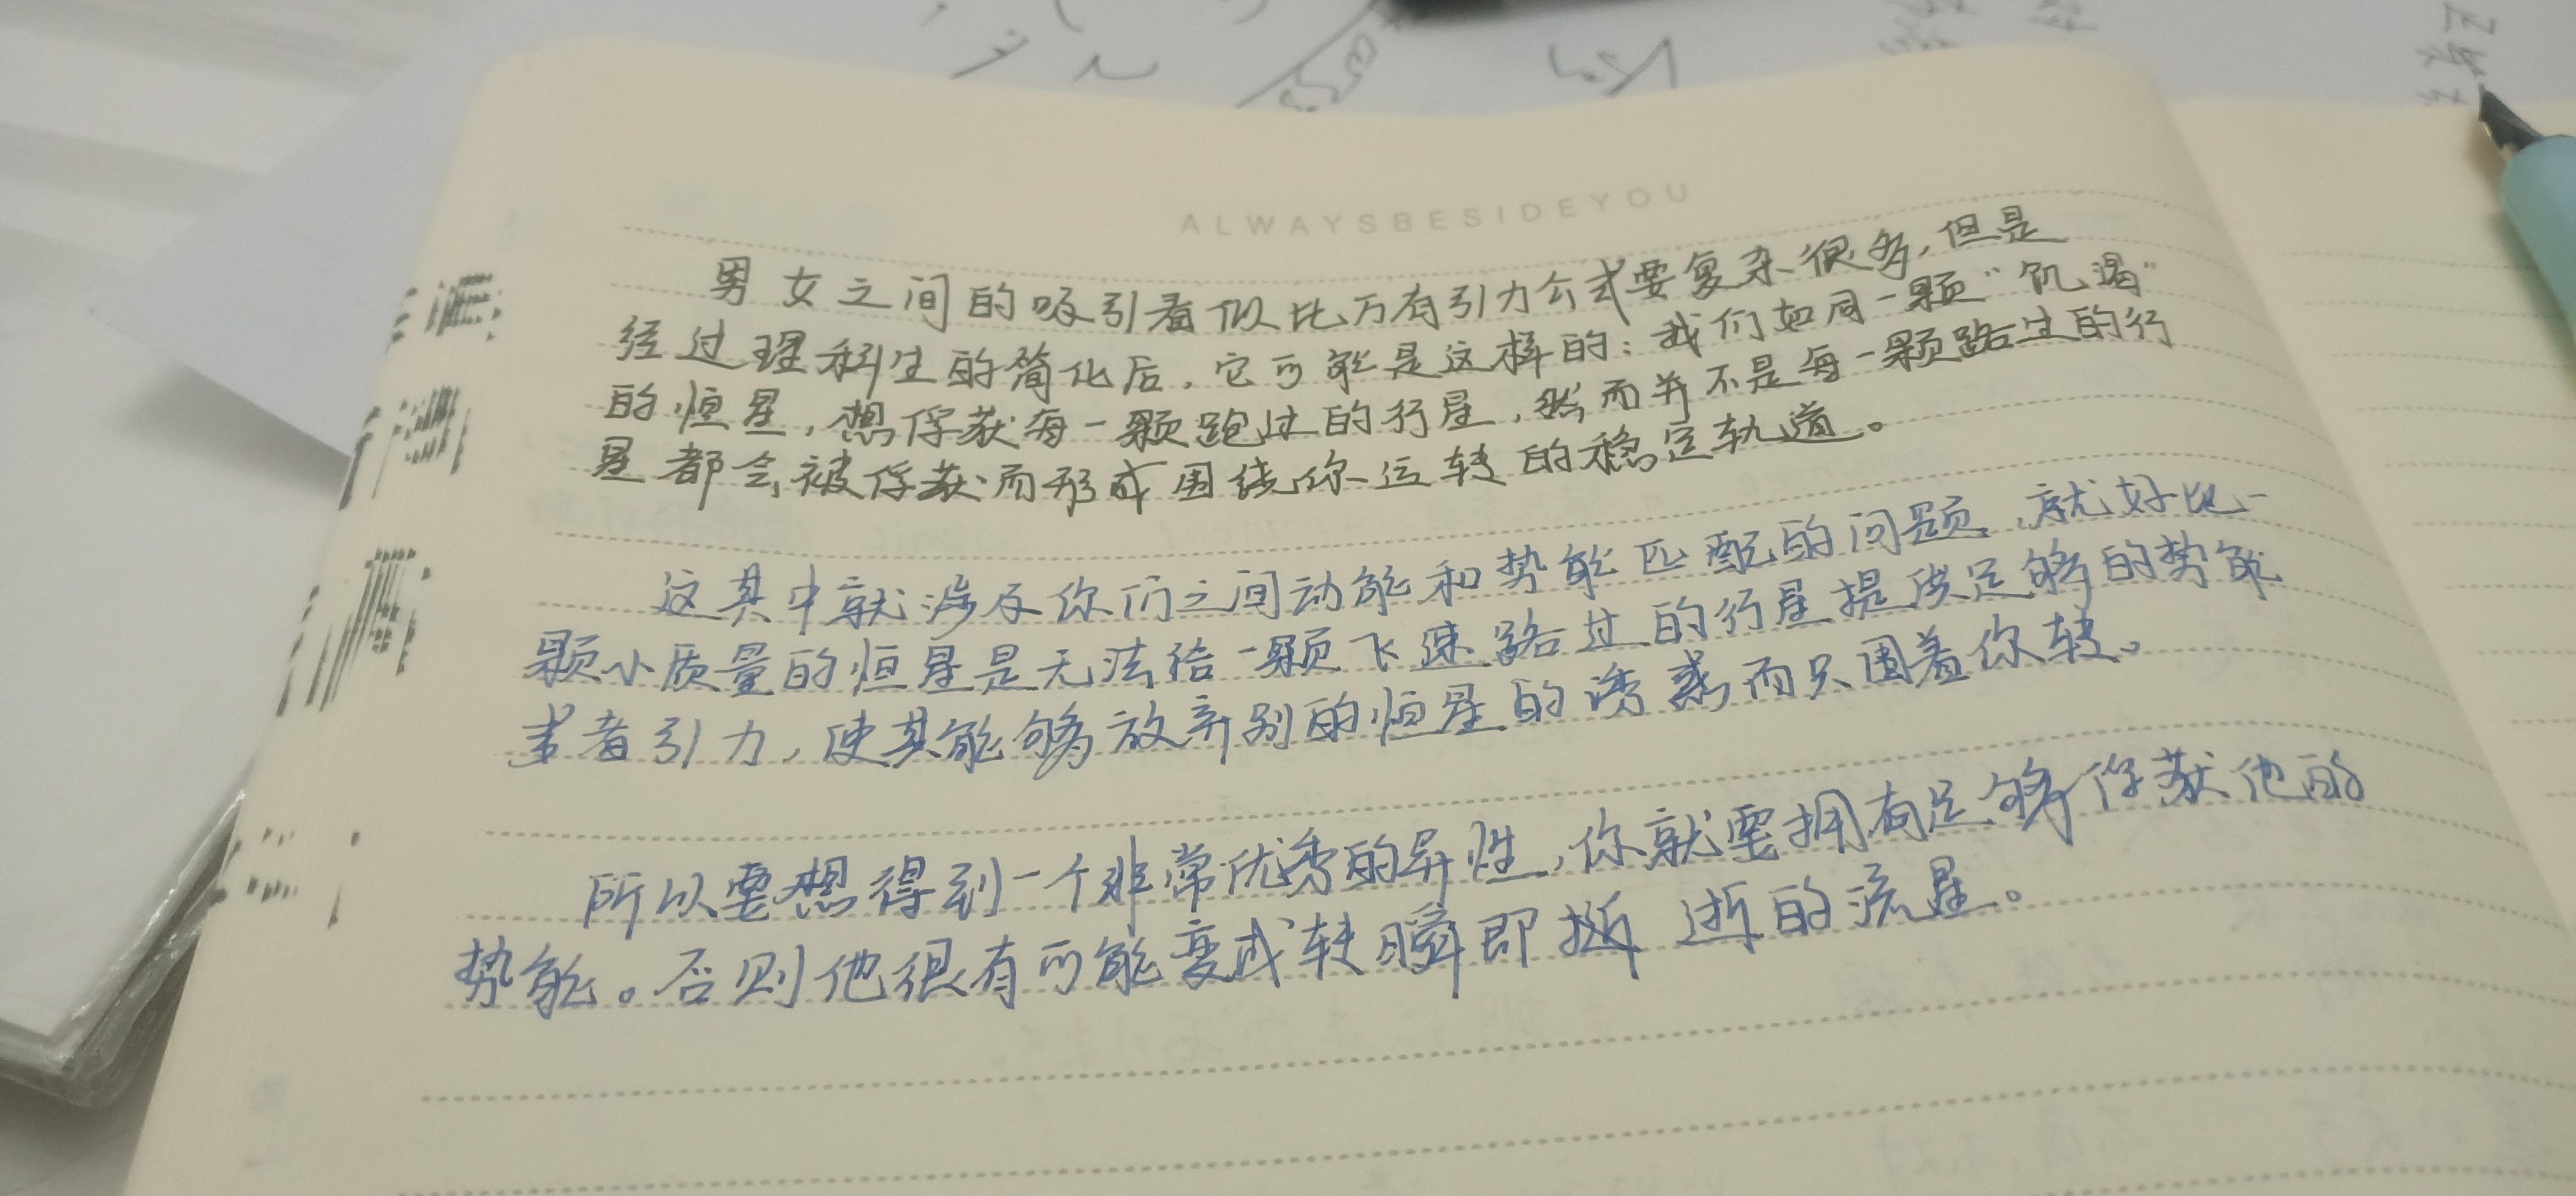 ALWAYSBESIDEYOU
男女之间的吸引看似比万有引力公式要复杂很多，但是
经过理科生的简化后，它可能是这样的：我们如同一颗“饥渴”
的恒星，想俘获每一颗跑过的行星，然而并不是每一颗路过的行
星都会被俘获而形成围绕你运转的稳定轨道。
这其中就涉及你们之间动能和势能匹配的问题，就好比一
颗小质量的恒星是无法给一颗飞速路过的行星提供足够的势能
或者引力，使其能够放弃别的恒星的诱惑而只围着你转。
所以要想得到一个非常优秀的异性，你就要拥有足够俘获他的
势能。否则他很有可能变成转瞬即逝的流星。